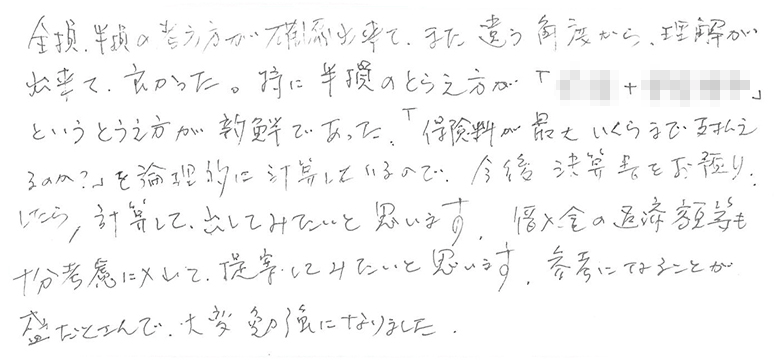 全損、半損の考え方が確認出来て、また違う角度から、理解が
出来て、良かった。特に半損のとらえ方が「 + 」
というとらえ方が新鮮であった。「保険料が最大いくらまで支払え
るのか?」を論理的に計算しているので、今後決算書をお預り
したら、計算して、出してみたいと思います。借入金の返済額等も
十分考慮に入れて、提案してみたいと思います。参考になることが
盛だくさんで、大変勉強になりました。